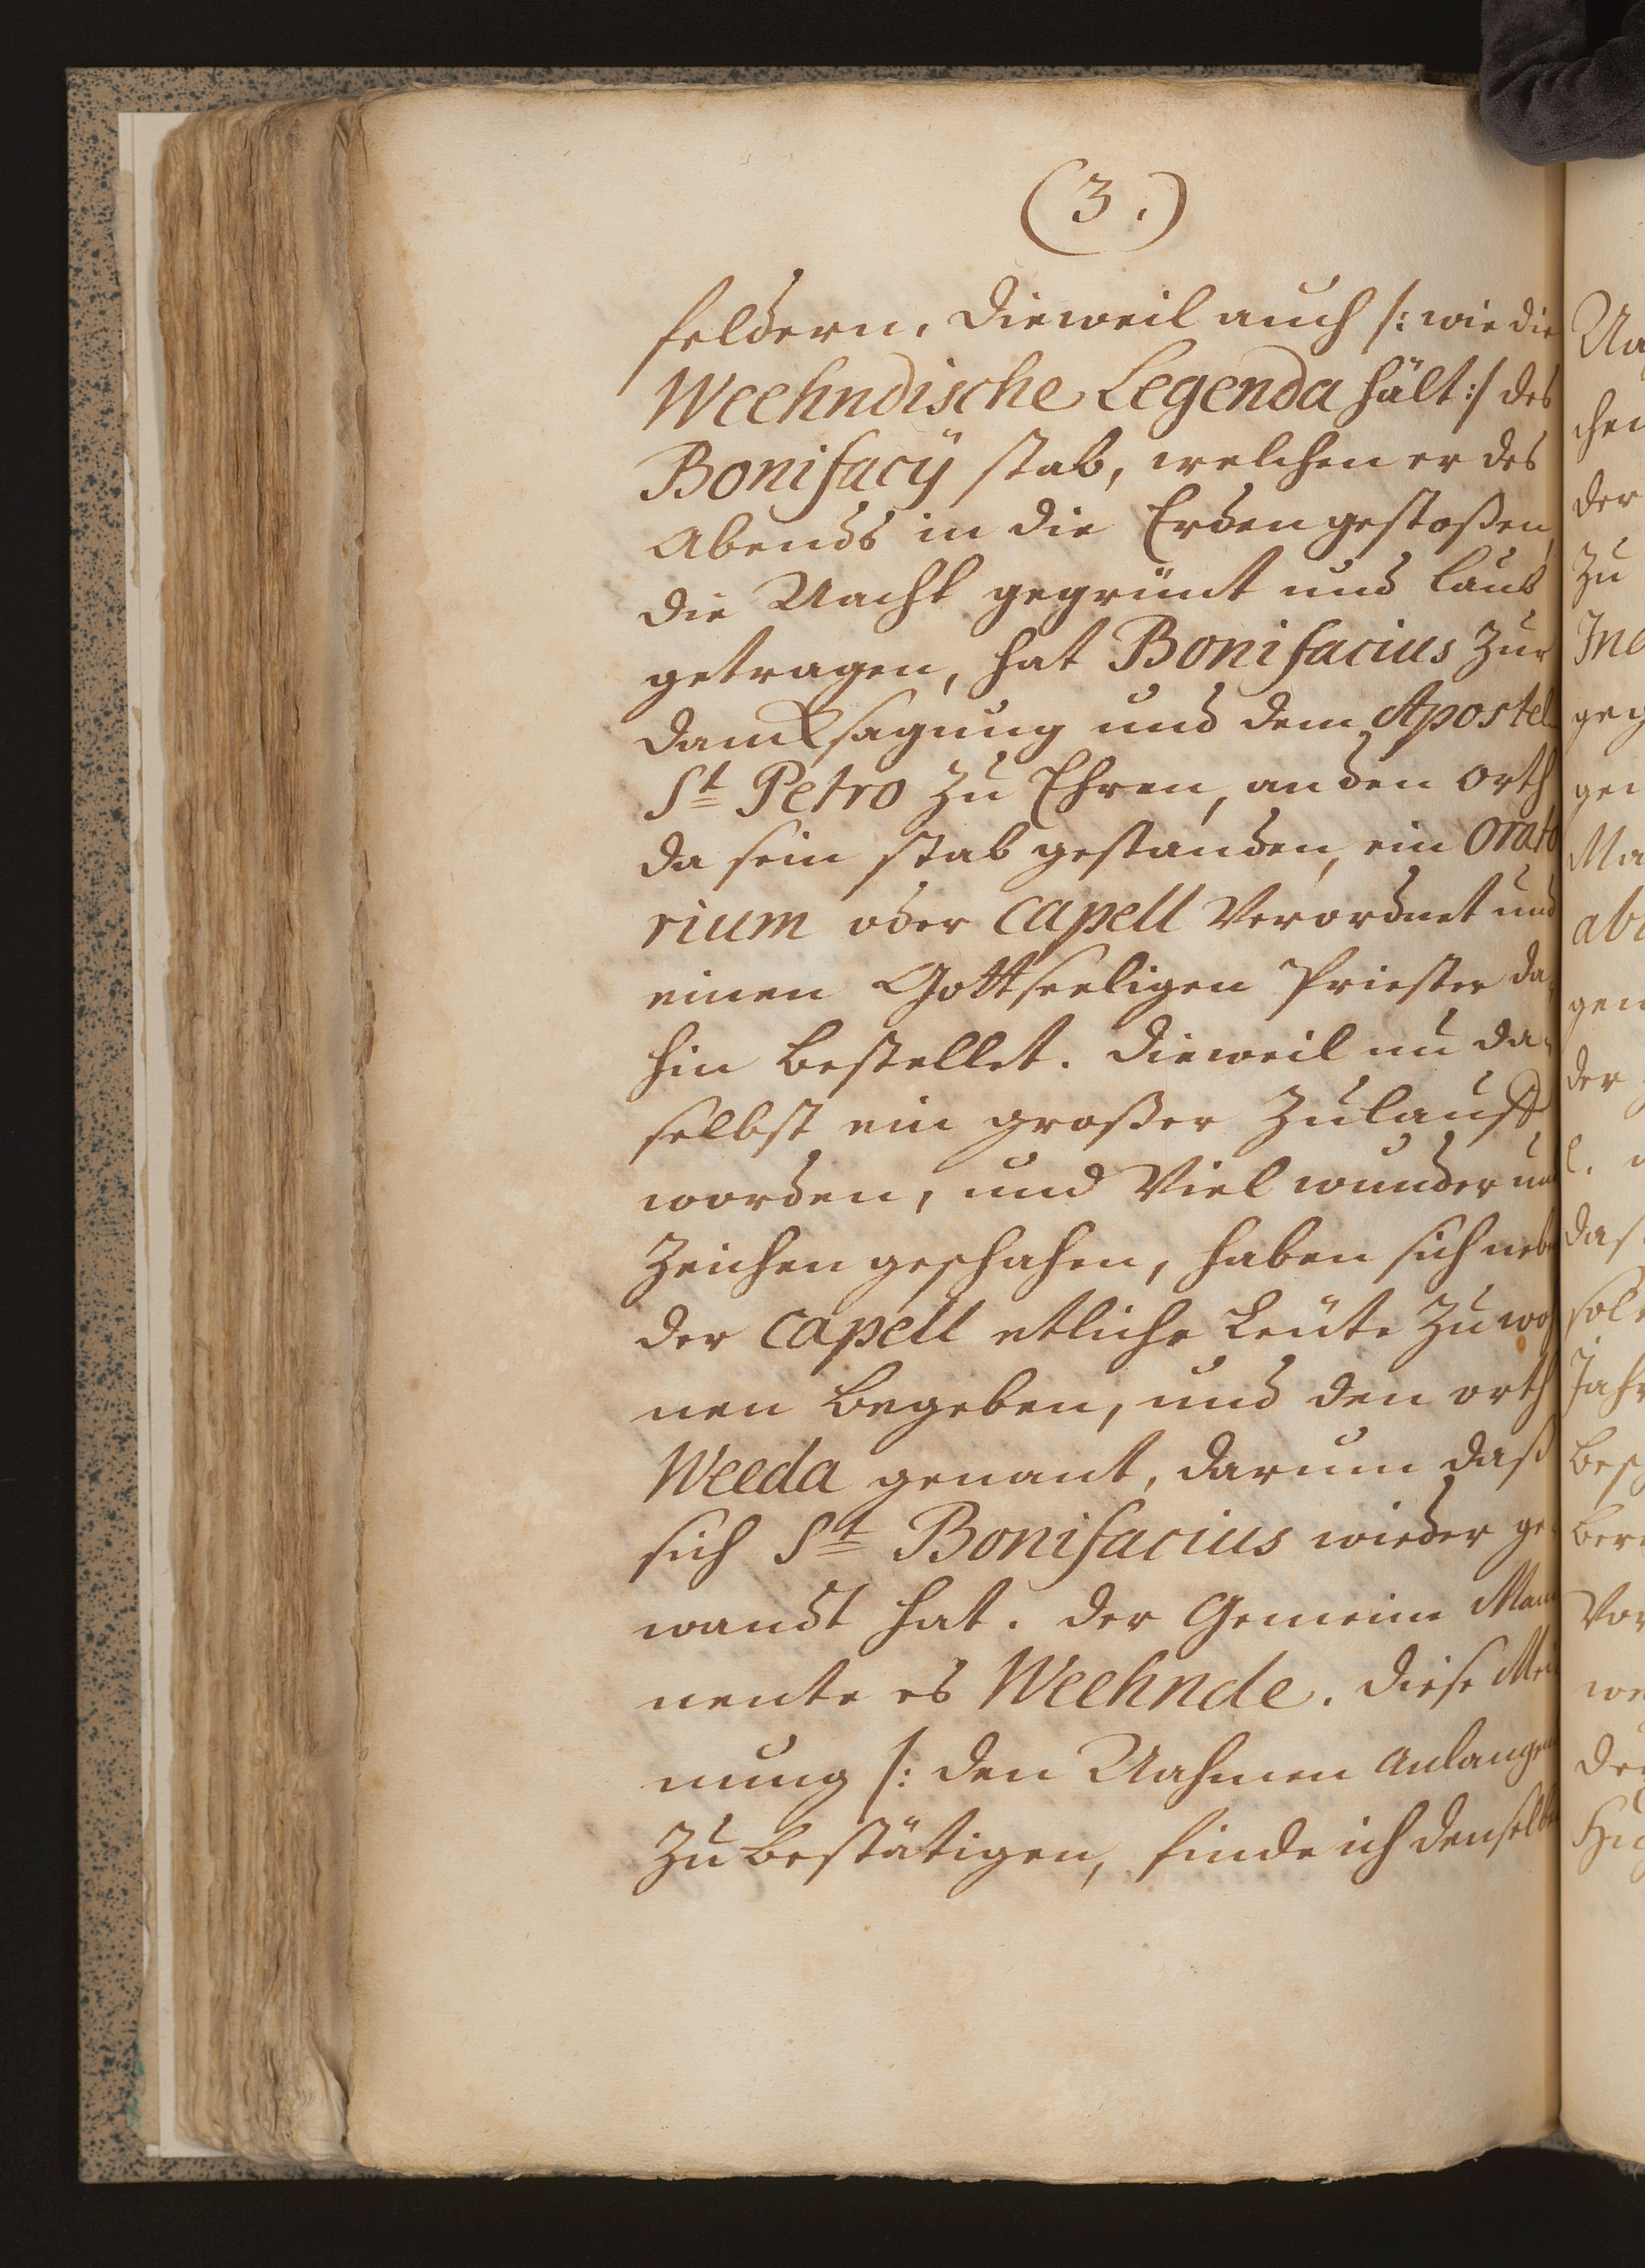 (3.)
feldern. Dieweil auch /: wie die
Weehndische Legenda hält :/ des
Bonifacÿ stab, welchen er des
Abends in die Erden gestoßen,
die Nacht gegrünt und laub
getragen, hat Bonifacius zur
Dancksagung und dem Apostel
St Petro zu Ehren, an den orth
da sein stab gestanden, ein Orato
rium oder Capell verordnet und
einen Gottseeligen Priester da
hin bestellet. Dieweil nu da=
selbst ein großer Zulauff
worden, und Viel wunder und
Zeichen geschahen, haben sich neben
der Capell etliche Leüte zu woh
nen begeben, und den orth
Weeda genant, darum daß
sich St Bonifacius wieder ge=
wandt hat. der Gemeine Mann
nente es Weehnde. Diese Mei
nung /: den Nahmen anlangend
zu bestätigen, finde ich denselben